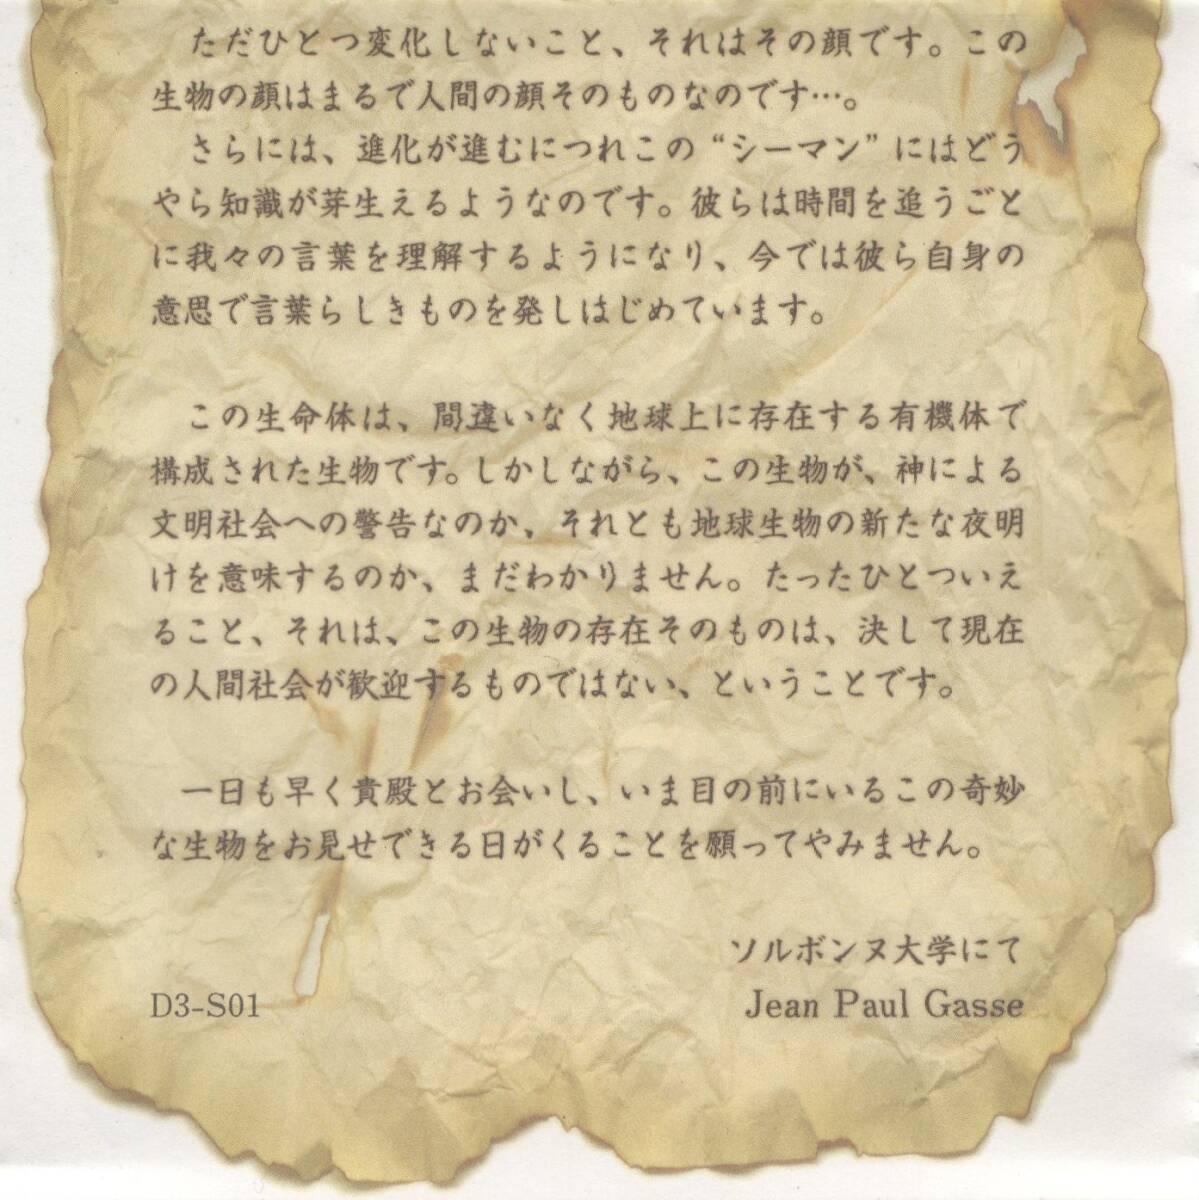 ただひとつ変化しないこと、それはその顔です。この
生物の顔はまるで人間の顔そのものなのです…。
さらには、進化が進むにつれこの“シーマン”にはどう
やら知識が芽生えるようなのです。彼らは時間を追うごと
に我々の言葉を理解するようになり、今では彼ら自身の
意思で言葉らしきものを発しはじめています。
この生命体は、間違いなく地球上に存在する有機体で
構成された生物です。しかしながら、この生物が、神による
文明社会への警告なのか、それとも地球生物の新たな夜明
けを意味するのか、まだわかりません。たったひとついえ
ること、それは、この生物の存在そのものは、決して現在
の人間社会が歓迎するものではない、ということです。
一日も早く貴殿とお会いし、いま目の前にいるこの奇妙
な生物をお見せできる日がくることを願ってやみません。
ソルボンヌ大学にて
D3-S01
Jean Paul Gasse